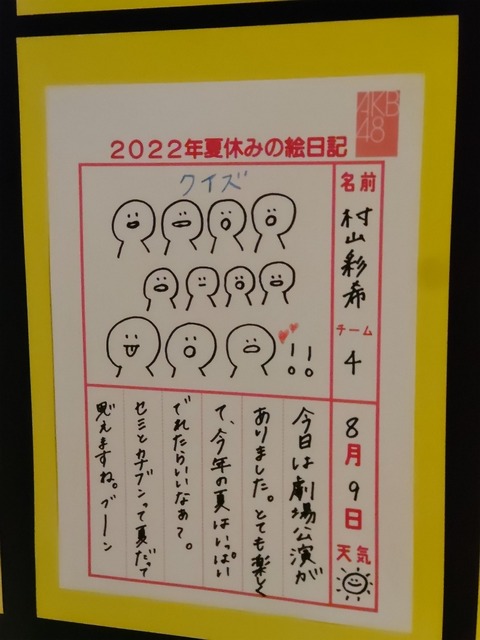 AKB
48
2022年夏休みの絵日記
クイズ
!!
名前
村山彩希
チーム
4
8月9日
天気
今日は劇場公演が
ありました。とても楽しく
て、今年の夏はいっぱい
でれたらいいなぁ?。
セミとカナブンって夏だって
思えますね。ブーン